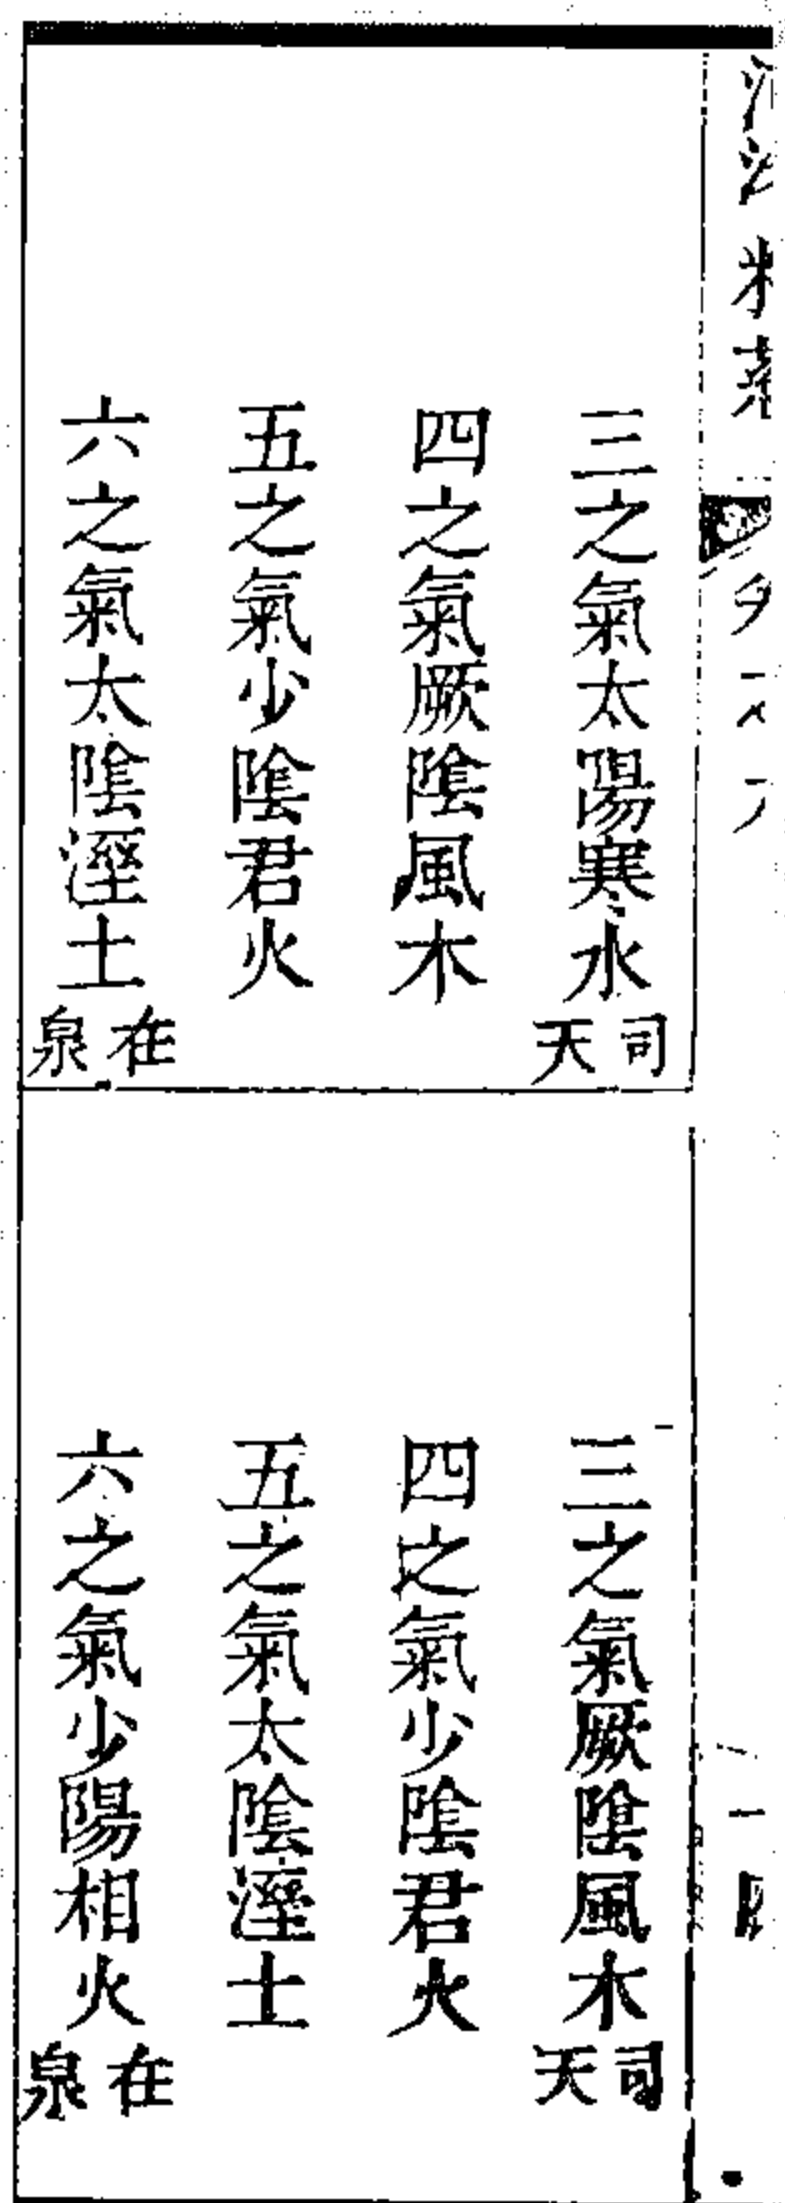 三之氣太陽寒水司天
四之氣厥陰風木
五之氣少陰君火
六之氣太陰溼土在泉
三之氣厥陰風木司天
四之氣少陰君火
五之氣太陰溼土
六之氣少陽相火在泉